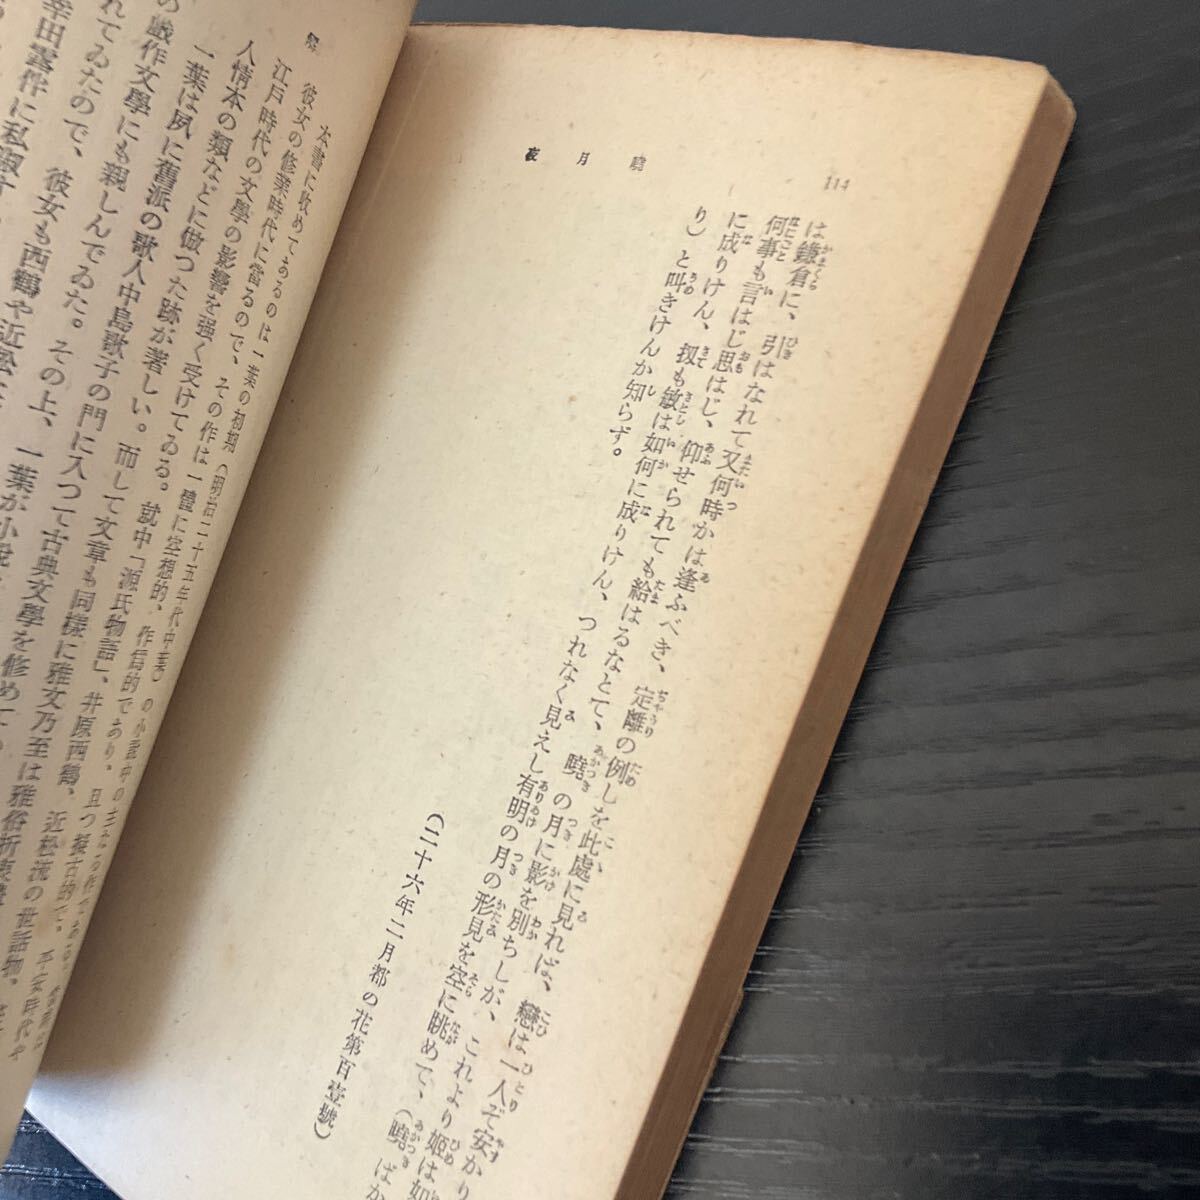 114
曉月夜
は鎌倉に、引はなれて又何時かは逢ふべき、定離の例しを此處に見れば、戀は一人ぞ安かり
何事も言はじ思はじ、仰せられても給はるなとて、曉の月に影を別ちしが、これより姫は如
に成りけん、扨も敏は如何に成りけん、つれなく見えし有明の月の形見を空に眺めて、(曉ばか
り)と叫きけんか知らず。
(二十六年二月都の花第百壹號)
解
本書に收めてあるのは一葉の初期(明治二十五年代中葉)の小説中の主なる作である
彼女の修業時代に當るので、その作は一體に空想的、作爲的であり、且つ擬古的で、平安時代や
江戸時代の文學の影響を強く受けてゐる。就中「源氏物語」、井原西鶴、近松流の世話物、
人情本の類などに倣つた跡が著しい。而して文章も同樣に雅文乃至は雅俗折衷
一葉は夙に舊派の歌人中島歌子の門に入つて古典文學を修めて
の戲作文學にも親しんでゐた。その上、一葉が小説
れてゐたので、彼女も西鶴や近松
幸田露伴に私淑